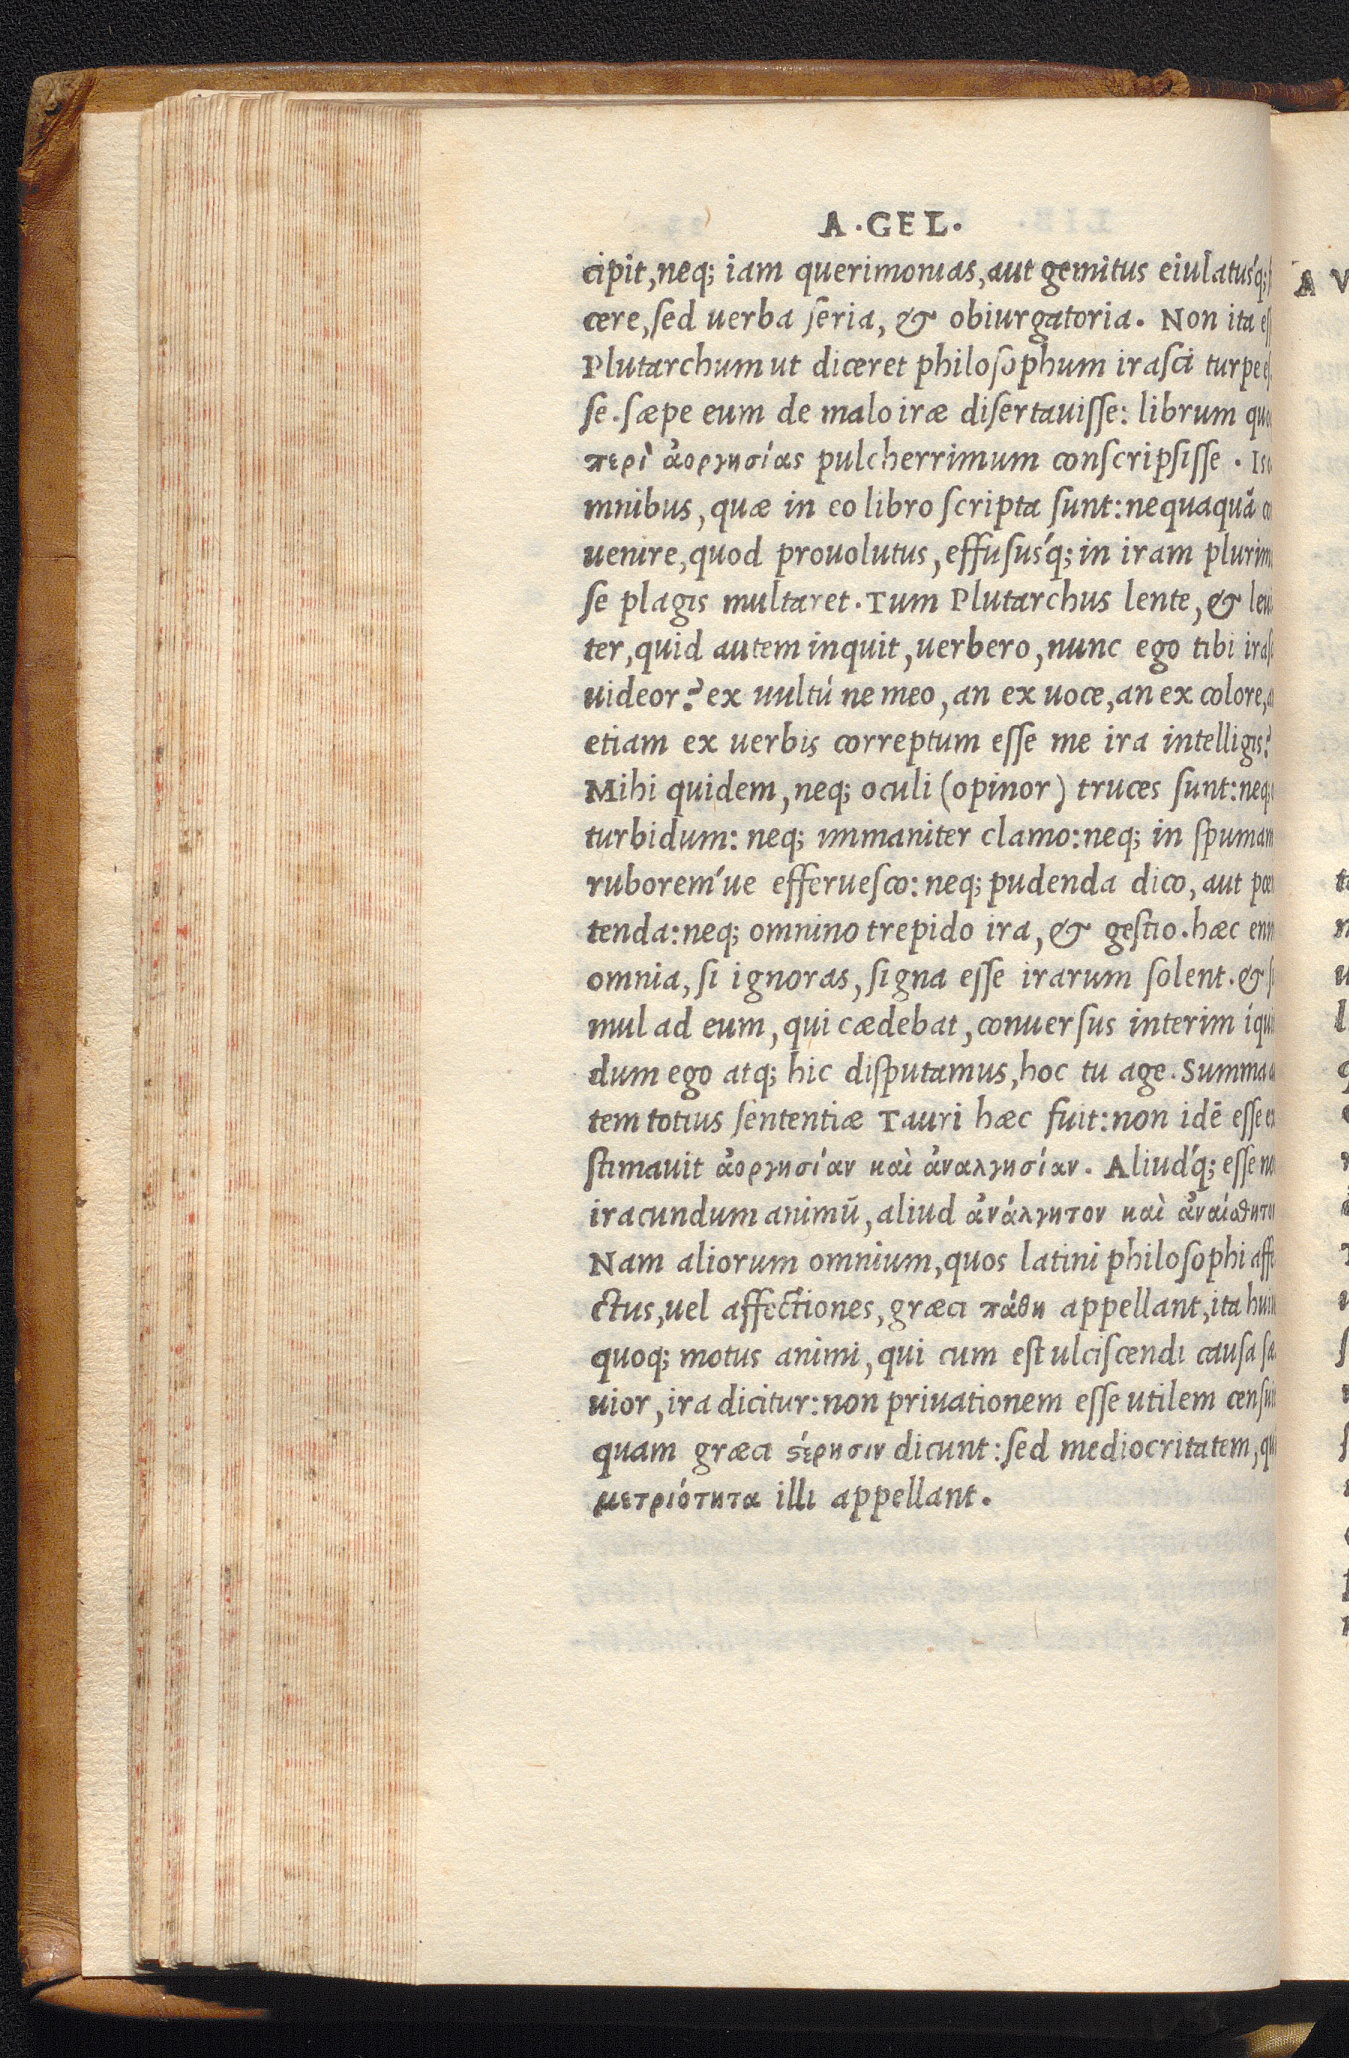 A. GEL.
cipit, neq; iam querimonias, aut gemitus eiulatus´q;
cere, sed uerba seria, & obiurgatoria. Non ita
Plutarchum ut diceret philosophum irasci turpe
se. sæpe eum de malo iræ disertauisse: librum
περὶ ἀοργησίας pulcherrimum conscripsisse.
mnibus, quæ in eo libro scripta sunt: nequaquā
uenire, quod prouolutus, effusus´q; in iram
se plagis multaret. Tum Plutarchus lente, &
ter, quid autem inquit, uerbero, nunc ego tibi
uideor? ex uultú ne meo, an ex uoce, an ex colore,
etiam ex uerbis correptum esse me ira intelligis?
Mihi quidem, neq; oculi (opinor) truces sunt: neq;
turbidum: neq; immaniter clamo: neq; in spumam
ruborem´ue efferuesco: neq; pudenda dico, aut
tenda: neq; omnino trepido ira, & gestio. hæc
omnia, si ignoras, signa esse irarum solent. &
mul ad eum, qui cædebat, conuersus interim
dum ego atq; hic disputamus, hoc tu age. Summa
tem totius sententiæ Tauri hæc fuit: non idē esse
stimauit ἀοργησίαν καὶ ἀναλγησίαν. Aliud´q; esse
iracundum animū, aliud ἀνάλγητον καὶ
Nam aliorum omnium, quos latini philosophi
ctus, uel affectiones, græci πάθη appellant, ita
quoq; motus animi, qui cum est ulciscendi causa
uior, ira dicitur: non priuationem esse utilem
quam græci ϛέρησιν dicunt: sed mediocritatem,
μετριότητα illi appellant.